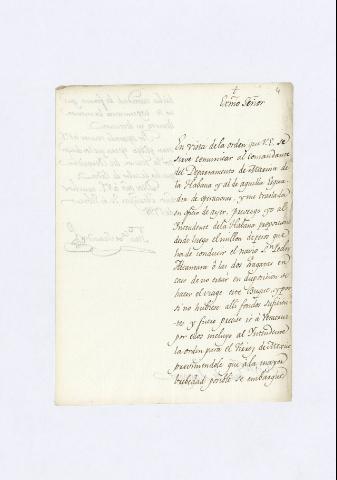 4
Exmo Señor
En vista de la orden que V.E. se
sirve comunicar al Comandante
del Departamento de Marina de
la Habana y al de aquella Esqua
dra de operaciones, y me traslada
en oficio de ayer, prevengo yo al
Intendente de la Habana proporcione
desde luego el millon de pesos que
ha de conducir el navio Sn. Pedro
Alcantara ó las dos fragatas en
caso de no estar en disposicion de
hacer el viage este Buque, y por
si no hubiese alli fondos suficien
tes y fuere preciso ir á Veracruz
por ellos incluyo al Intendente
la orden para el Virey de Mexico
previniendole que á la mayor
brebedad posible se embarquen